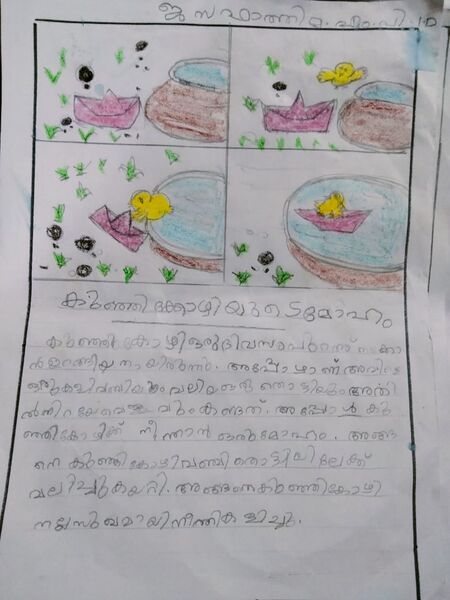 ജ സഫാത്തിമ. എം. വി. 1D
കുഞ്ഞി ക്കോഴിയുടെ മോഹം
കുഞ്ഞി കോഴി ഒരു ദിവസം പുറത്ത് നടക്കാ
ൻ ഇറങ്ങിയതായിരുന്നു. അപ്പോഴാണ് അവിടെ
ഒരു കളിവഞ്ചിയും വലിയ ഒരു തൊട്ടിയും അതി
ൽ നിറയെ വെള്ളവും കണ്ടത്. അപ്പോൾ കു
ഞ്ഞികോഴിക്ക് നീന്താൻ ഒരു മോഹം. അങ്ങ
നെ കുഞ്ഞി കോഴി വഞ്ചി തൊട്ടിലിലേക്ക്
വലിച്ചു കയറ്റി. അങ്ങനെ കുഞ്ഞികോഴി
നല്ല സുഖമായി നീന്തി കളിച്ചു.